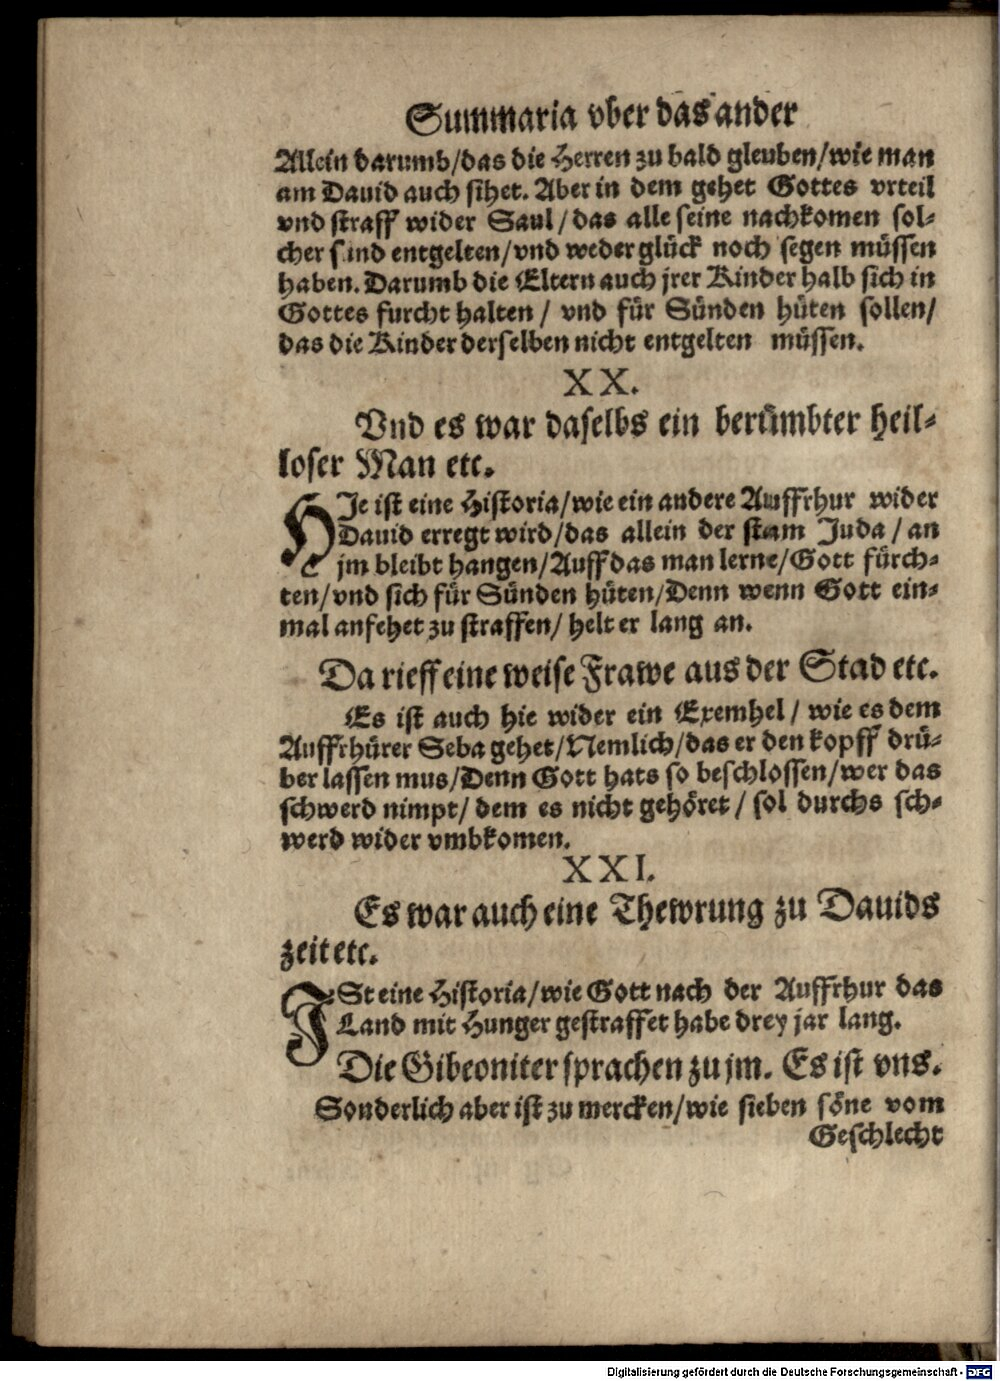 Summaria vber das ander
Allein darumb/das die Herren zu bald gleuben/wie man
am Dauid auch sihet. Aber in dem gehet Gottes vrteil
vnd straff wider Saul/das alle seine nachkomen sol-
cher sind entgelten/vnd weder glück noch segen müssen
haben. Darumb die Eltern auch jrer Kinder halb sich in
Gottes furcht halten/ vnd für Sünden hüten sollen/
das die Kinder derselben nicht entgelten müssen.
XX.
Vnd es war daselbs ein berümbter heil-
loser Man etc.
HJe ist eine Historia/wie ein andere Auffrhur wider
Dauid erregt wird/das allein der stam Juda/an
jm bleibt hangen/Auff das man lerne/Gott fürch-
ten/vnd sich für Sünden hüten/Denn wenn Gott ein-
mal anfehet zu straffen/ helt er lang an.
Da rieff eine weise Frawe aus der Stad etc.
Es ist auch hie wider ein Exemhel/ wie es dem
Auffrhürer Seba gehet/Nemlich/das er den kopff drü-
ber lassen mus/Denn Gott hats so beschlossen/wer das
schwerd nimpt/ dem es nicht gehöret/ sol durchs sch-
werd wider vmbkomen.
XXI.
Es war auch eine Thewrung zu Dauids
zeit etc.
JSt eine Historia/wie Gott nach der Auffrhur das
Land mit Hunger gestraffet habe drey jar lang.
Die Gibeoniter sprachen zu jm. Es ist vns.
Sonderlich aber ist zu mercken/wie sieben söne vom
Geschlecht
Digitalisierung gefördert durch die Deutsche Forschungsgemeinschaft - DFG